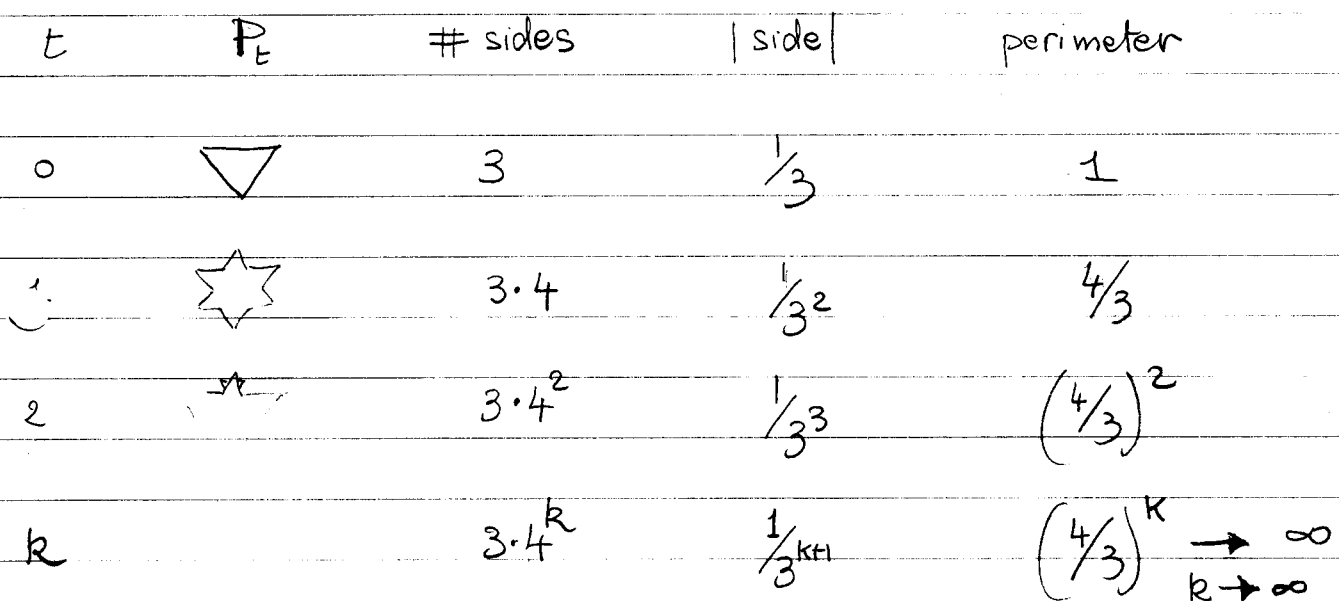 t P_t # sides | side | perimeter
0 3 1/3 1
1 3·4 1/3² 4/3
2 3·4² 1/3³ (4/3)²
k 3·4^k 1/3^(k+1) (4/3)^k → ∞
k → ∞